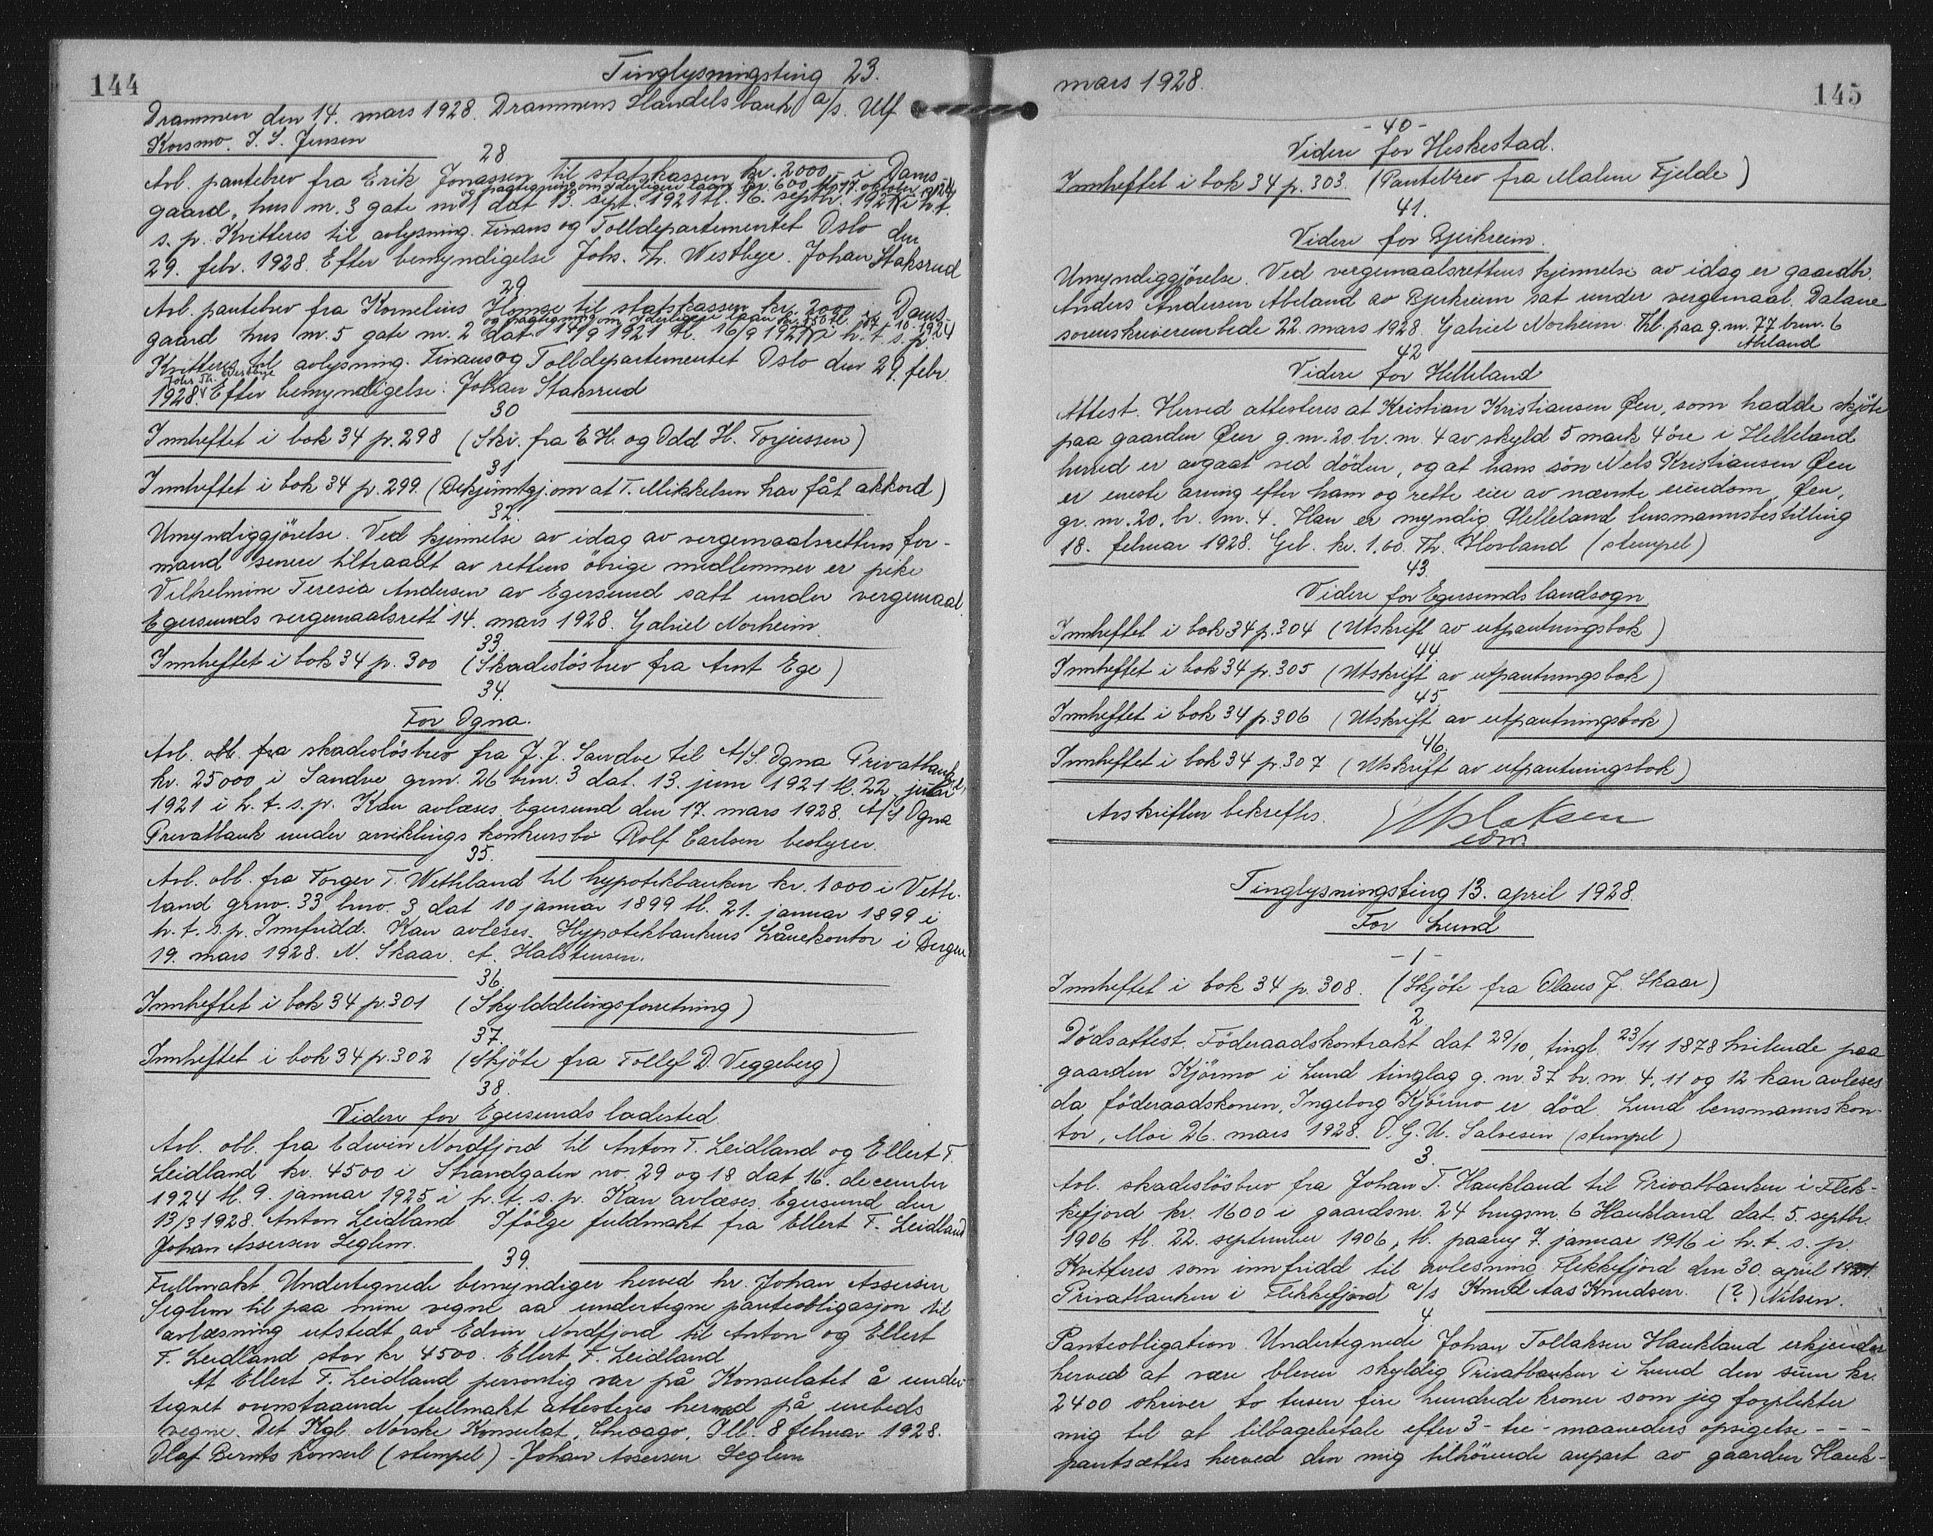 144
Tinglysningsting 23.
Drammen den 14. mars 1928. Drammens Handelsbank a/s. Ulf
Korsmo. I. S. Jensen
28
Avl. pantebrev fra Erik Jonassen til statskassen kr. 2000 i Dams-
og paategning om yderligere laan kr. 600 tl. 17. oktober 1924
gaard, hus nr. 3 gate nr. 1 dat 13. sept. 1921 tl. 16. septbr. 1921 i h. t.
s. p. Kvitteres til avlysning. Finans og Tolldepartementet Oslo den
29. febr. 1928. Efter bemyndigelse Johs. Th. Westbye. Johan Staksrud
29
Avl. pantebrev fra Kornelius Homse til statskassen kr. 2000 i Dams-
og paategning om yderligere laan kr. 350 tl. 10. 1924
gaard hus nr. 5 gate nr. 2 dat 14/9 1921 tl. 16/9 1921 i h. t. s. p.
Kvitteres til avlysning. Finans og Tolldepartementet Oslo den 29. febr.
Johs. Th. Westbye
1928. Efter bemyndigelse: Johan Staksrud
30
Innheftet i bok 34 p. 298 (Skj. fra E. H. og Odd H. Torjussen)
31
Innheftet i bok 34 p. 299. (Bekjenntgj. om at T. Mikkelsen har fåt akkord)
32.
Umyndiggjörelse. Ved kjennelse av idag av vergemaalsrettens for-
mand senere tiltraadt av rettens övrige medlemmer er pike
Vilhelmine Teresia Andersen av Egersund satt under vergemaal.
Egersunds vergemaalsrett 14. mars 1928. Gabriel Norheim.
33.
Innheftet i bok 34 p. 300 (Skadeslösbrev fra Arnt Ege)
34.
For Ogna.
Avl. obl. fra skadeslösbrev fra J. J. Sandve til A/S. Ogna Privatbank
kr. 25000 i Sandve grnr. 26 brnr. 3 dat. 13. juni 1921 tl. 22. juli
1921 i h. t. s. p. Kan avlæses. Egersund den 17. mars 1928. A/S Ogna
Privatbank under avviklings konkursbo Rolf Carlsen bestyrer.
35.
Avl. obl. fra Torger T. Wetteland til hypotekbanken kr. 1000 i Vette-
land grno. 33 brno. 3 dat 10 januar 1899 tl. 21. januar 1899 i
h. t. s. p. Innfridd. Kan avleses. Hypotekbankens Lånekontor i Bergen
19. mars 1928. N. Skaar. A. Halstensen.
36.
Innheftet i bok 34 p. 301 (Skylddelingsforretning)
37.
Innheftet i bok 34 p. 302 (Skjöte fra Tollef D. Veggeberg)
38.
Videre for Egersunds ladested
Avl. obl. fra Edwin Nordfjord til Anton T. Leidland og Ellert T.
Leidland kr. 4500 i Strandgaten no. 29 og 18 dat 16. december
1924 tl. 9. januar 1925 i h. t. s. p. Kan avlæses. Egersund den
13/3 1928. Anton Leidland Ifölge fuldmakt fra Ellert T. Leidland
Johan Assersen Seglem.
39.
Fullmakt. Undertegnede bemyndiger herved hr. Johan Assersen
Seglem til paa mine vegne aa undertegne panteobligasjon til
avlæsning utstedt av Edvin Nordfjord til Anton og Ellert
T. Leidland stor kr 4500. Ellert T. Leidland
At Ellert T. Leidland personlig var på Konsulatet å under-
tegnet ovenstaaende fullmakt attesteres herved på embeds
vegne. Det Kgl. Norske Konsulat, Chicago, Ill. 8 februar 1928.
Olaf Bernts konsul (stempel) - Johan Assersen Seglem
mars 1928.
145
- 40 -
Videre for Heskestad.
Innheftet i bok 34 p. 303. (Pantebrev fra Malene Fjelde)
41.
Videre for Bjerkreim.
Umyndiggjörelse. Ved vergemaalsrettens kjennelse av idag er gaardbr.
Anders Andersen Abeland av Bjerkreim sat under vergemaal. Dalane
sorenskriverembede 22 mars 1928. Gabriel Norheim. Thl. paa g. nr. 77 brnr. 6
Abeland
42
Videre for Helleland
Attest. Herved attesteres at Kristian Kristiansen Øen, som hadde skjöte
paa gaarden Øen g. nr. 20 br. nr. 4 av skyld 5 mark 4 öre i Helleland
herred er avgaat ved döden, og at hans sön Nels Kristiansen Øen
er eneste arving efter ham og rette eier av nævnte eiendom, Øen,
gr. nr. 20. br. nr. 4. Han er myndig. Helleland lensmannsbestilling
18. februar 1928. Geb. kr. 1.60. Th. Hovland (stempel)
43
Videre for Egersunds landsogn
Innheftet i bok 34 p. 304 (Utskrift av utpantningsbok)
44.
Innheftet i bok 34 p. 305 (Utskrift av utpantningsbok)
45.
Innheftet i bok 34 p. 306 (Utskrift av utpantningsbok)
46.
Innheftet i bok 34 p. 307 (Utskrift av utpantningsbok)
Avskriften bekreftes.
Tinglysningsting 13. april 1928.
For Lund
- 1 -
Innheftet i bok 34 p. 308. (Skjöte fra Olaus J. Skaar)
2
Dödsattest. Föderaadskontrakt dat 29/10, tingl. 23/11 1878 hvilende paa
gaarden Kjörmo i Lund tinglag g. nr. 37 br. nr. 4, 11 og 12 kan avleses
da föderaadskonen, Ingeborg Kjörmo er död. Lund lensmannskon-
tor, Moi 26. mars 1928. O. G. U. Salvesen (stempel)
3.
Avl. skadeslösbrev fra Johan T. Haukland til Privatbanken i Flek-
kefjord kr. 1600 i gaardsnr. 24 brugsnr. 6 Haukland dat. 5. septbr.
1906 tl. 22. september 1906, tl. paany 7. januar 1916 i h. t. s. p.
Kvitteres som innfridd til avlesning. Flekkefjord den 30. april 1921.
Privatbanken i Flekkefjord a/s Knud Aas Knudsen. (?) Nilsen.
4
Panteobligation. Undertegnede Johan Tollaksen Haukland erkjender
herved at være bleven skyldig Privatbanken i Lund den sum kr.
2400 skriver to tusen fire hundrede kroner som jeg forplikter
mig til at tilbagebetale efter 3 - tre - maaneders opsigelse - - -
pantsættes herved den mig tilhörende anpart av gaarden Hauk-